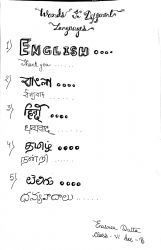 Words In Different
Languages -
1) ENGLISH ....
Thank you ......
2) বাংলা ....
ধন্যবাদ ......
3) हिन्दी ....
धन्यवाद ......
4) தமிழ் ....
நன்றி ......
5) తెలుగు ....
ధన్యవాదాలు ......
Dutta
Class - VI Sec - B